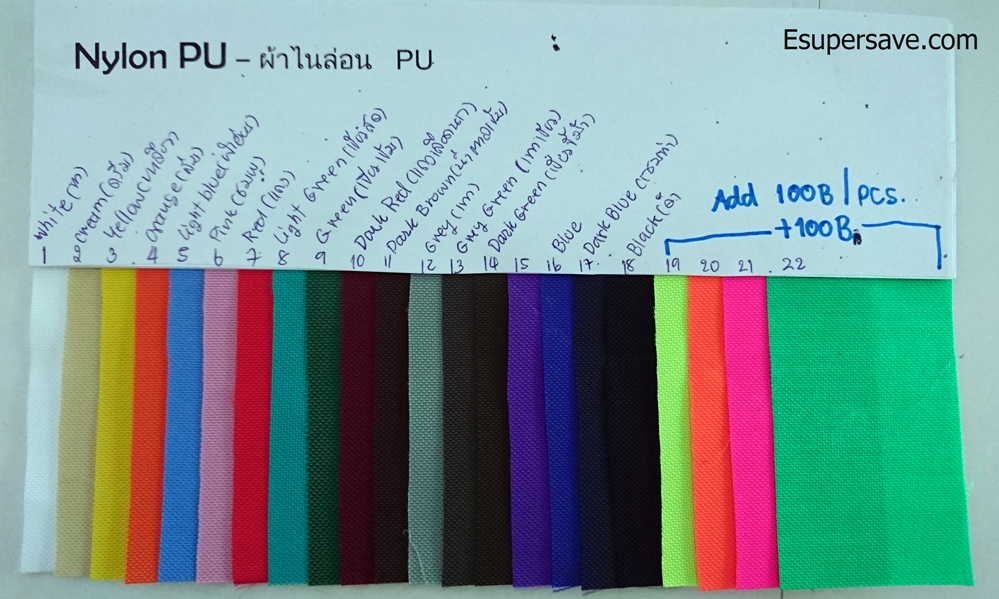 Esupersave.com
Nylon PU – ผ้าไนล่อน PU
White(ขาว)
Cream(ครีม)
Yellow(เหลือง)
Orange(ส้ม)
Light blue(ฟ้าอ่อน)
Pink(ชมพู)
Red(แดง)
Light Green(เขียวสด)
Green(เขียวเข้ม)
Dark Red(แดงเลือดนก)
Dark Brown(น้ำตาลเข้ม)
Grey(เทา)
Grey Green(เทาเขียว)
Dark Green(เขียวขี้ม้า)
Blue
Dark Blue(กรมท่า)
Black(ดำ)
Add 100B/pcs.
+100B
1 2 3 4 5 6 7 8 9 10 11 12 13 14 15 16 17 18 19 20 21 22